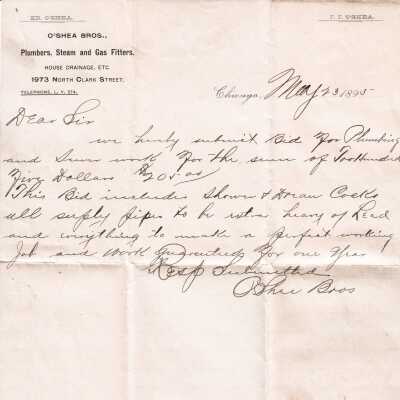 ED. O'SHEA.
J. J. O'SHEA.
O'SHEA BROS.,
Plumbers, Steam and Gas Fitters.
HOUSE DRAINAGE, ETC.
1973 NORTH CLARK STREET.
TELEPHONE, L. V. 274.
Chicago, May 23 1895
Dear Sir
we herby submit Bid for Plumbing
and Sewer work for the sum of Two Hundred
Five Dollars $205.00
This Bid includes Shower & Drain Cocks
all suply pipes to be extra heavy of Lead
and everything to make a perfect working
Job and work for one Year
Resp Submitted
O'Shea Bros